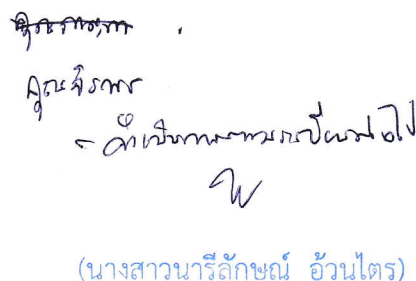 คุณจิราพร
- ดำเนินการตามระเบียบต่อไป
(นางสาวนารีลักษณ์ อ้วนไตร)